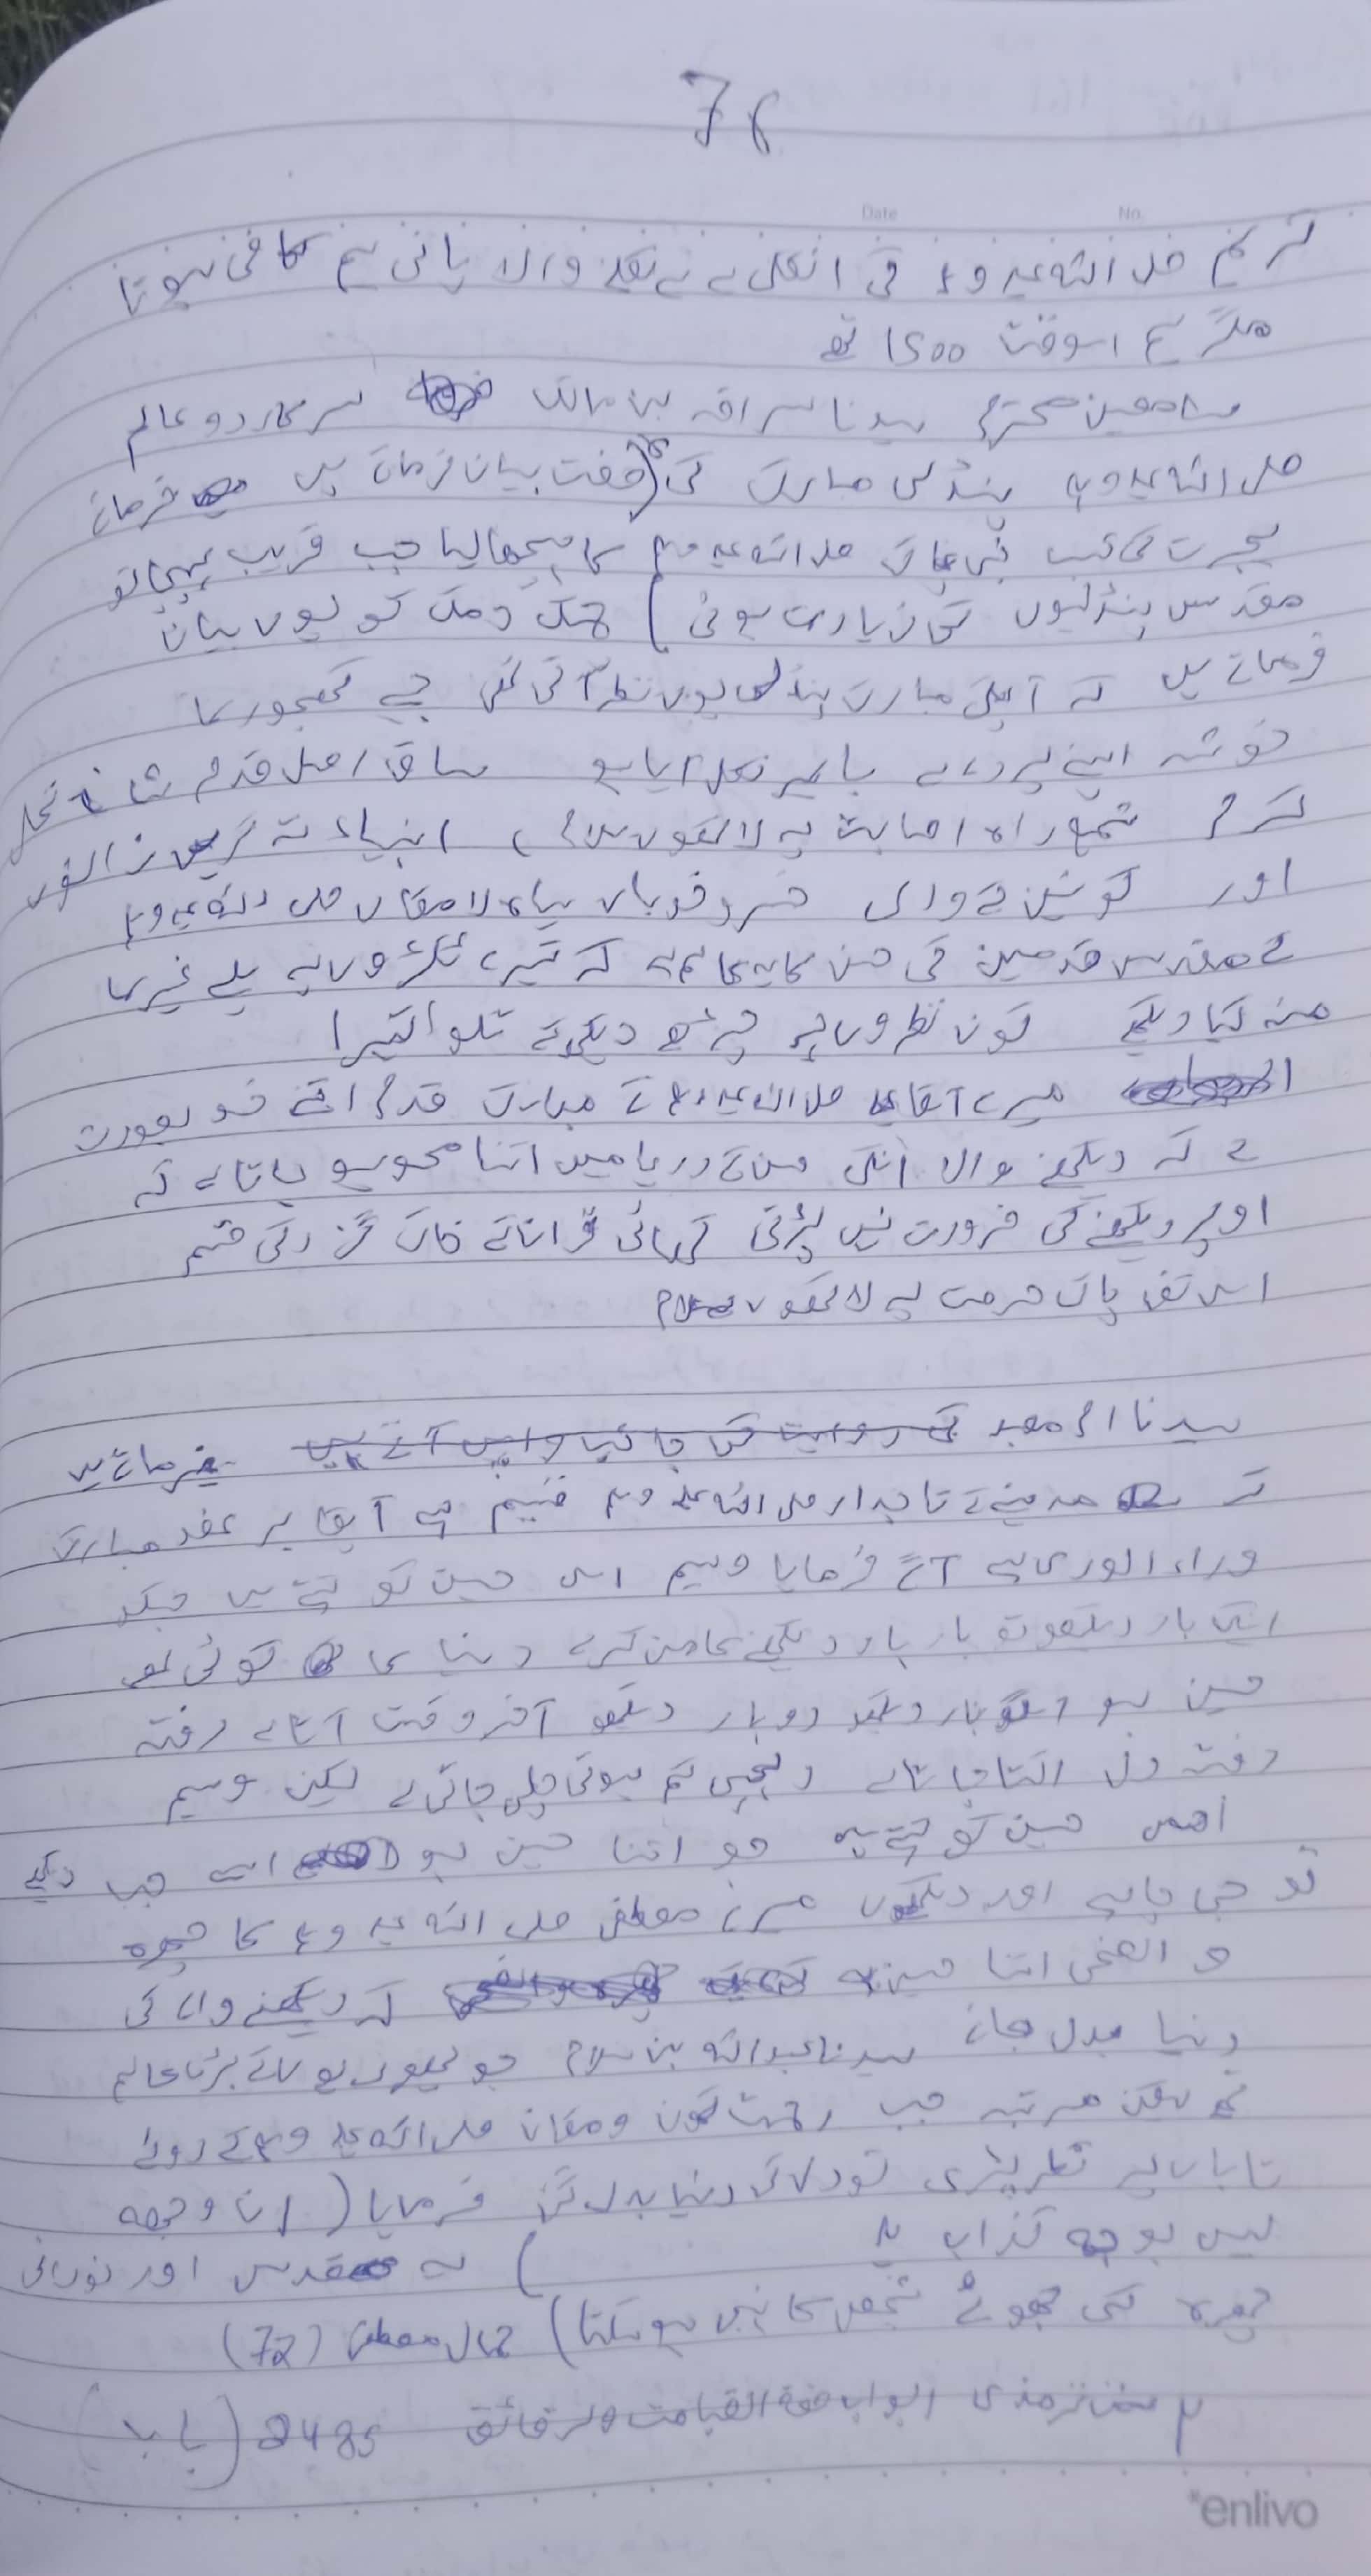 76
Date No.
کریم صلی اللہ علیہ وسلم کی انگلی سے نکلنے والا پانی ہم کافی ہوتا
مگر ہم اسوقت 1500 تھے
سامعین محترم سیدنا سراقہ بن مالک سرکار دو عالم
صلی اللہ علیہ وسلم پنڈلی مبارک کی صفت بیان فرماتے ہیں فرماتے
ہجرت کی شب نبی پاک صلی اللہ علیہ وسلم کا پیچھا لیا جب قریب پہنچا تو
مقدس پنڈلیوں کی زیارت ہوئی) چمک دمک کو یوں بیان
فرماتے ہیں کہ آپکی مبارک پنڈلی یوں نظر آتی تھی جیسے کھجور کا
خوشہ اپنے پردے سے باہر نکل آیا ہو ساق اصل قدم شاخ نخل
کرم شمع راہ اصابت پہ لاکھوں سلام انبیاء تہ کریں زانو
اور کونین کے والی خسرو خوباں سیاہ لامکاں صلی اللہ علیہ وسلم
کے مقدس قدمین کی حسن کا یہ عالم ہے کہ تیرے ٹکڑوں پہ پلے غیر کا
منہ کیا دیکھے کون نظروں پہ چڑھے دیکھ کے تلوا تیرا
میرے آقا صلی اللہ علیہ وسلم کے مبارک قدم اتنے خوبصورت
ہے کہ دیکھنے والا انکی حسن کے دریا میں اتنا محو ہو جاتا ہے کہ
اوپر دیکھنے کی ضرورت نہیں پڑتی کھائی قرآن نے خاک گزر کی قسم
اس کف پاک حرمت پہ لاکھوں سلام
سیدنا ام معبد کی روایت کی جانب واپس آتے ہیں فرماتے ہیں
کہ مدینے کے تاجدار صلی اللہ علیہ وسلم قسیم ہے آپکا ہر عضو مبارک
وراء الوری ہے آگے فرمایا وسیم اس حسین کو کہتے ہیں جسکو
ایک بار دیکھو تو بار بار دیکھنے کا من کرے دنیا کا کوئی بھی
حسین ہو ایک بار دیکھو دوبار دیکھو آخر وقت آتا ہے رفتہ
رفتہ دل اکتا جاتا ہے دلچسپی کم ہوتی چلی جاتی ہے لیکن وسیم
اس حسین کو کہتے ہیں جو اتنا حسین ہو اسے جب دیکھے
تو جی چاہے اور دیکھوں میرے مصطفی صلی اللہ علیہ وسلم کا چہرہ
والضحی اتنا حسین ہے کہ دیکھنے والے کی
دنیا بدل جائے سیدنا عبداللہ بن سلام جو یہودیوں کے بڑے عالم
تھے مرتبہ جب رحمت کون و مکاں صلی اللہ علیہ وسلم کے روئے
تاباں پر نظر پڑی تو دل کی دنیا بدل گئی فرمایا (ان وجھہ
لیس بوجہ کذاب ۲ ) یہ مقدس اور نورانی
چہرہ کسی جھوٹے شخص کا نہیں ہو سکتا) جمال مصطفی (72)
۲ سنن ترمذی ابواب صفۃ القیامت والرقائق 2485 (باب )
enlivo